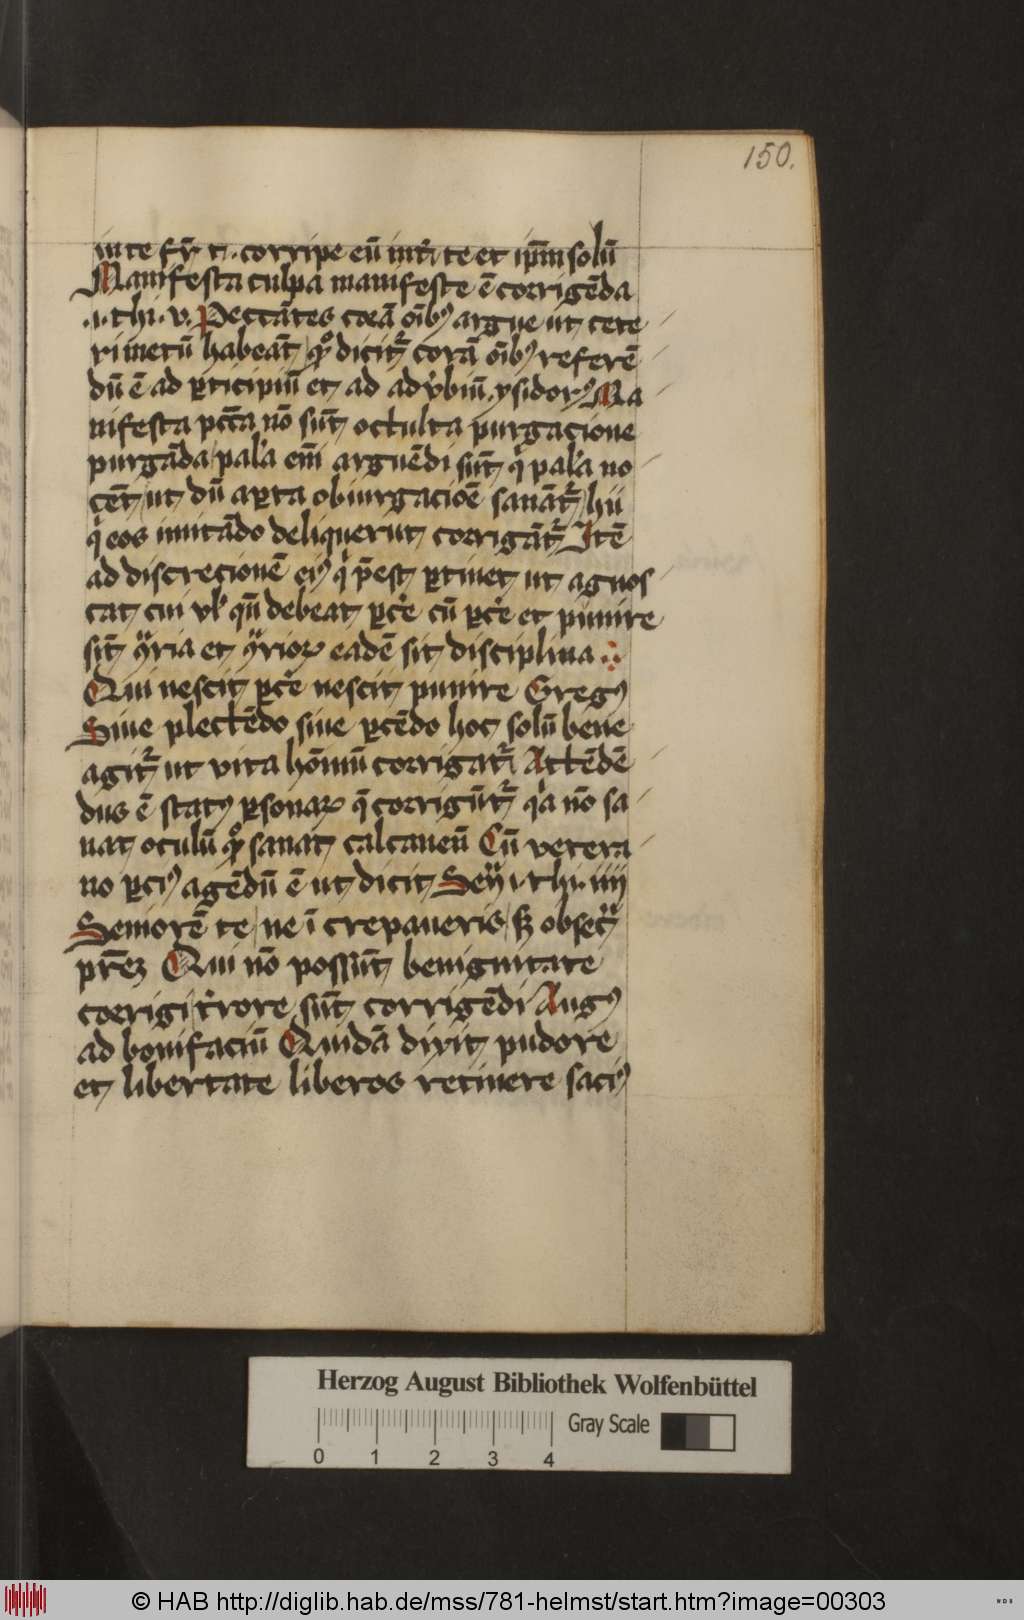 150.
in te fr̄ t̄. corripe eū int̉ te et ip̄m solū
Manifesta culpa manifeste ē corrigēda
.i. thi. v. Peccātes corā oīb⁹ argue ut cete
ri metū habeāt qͦ dicit᷑ corā oīb⁹ referē
dū ē ad ꝑticipiū et ad adv̉biū. ysidor⁹ Ma
nifesta pcc̄a nō sūt occulta purgacione
purgāda palā em̄ arguēdi sūt q̉ palā no
cēt ut dū aꝑta obiurgacioē sanāt᷑ hii
q̉ eos imitādo deliquerūt corrigāt᷑ Itē
ad discrecionē ei⁹ q̉ p̄est ꝑtinet ut agnos
cat cui vl̉ qn̄ debeat ꝑc̉e cū ꝑc̉e et punire
sūt ꝯ̈ria et ꝯ̈rioꝝ eadē sit disciplina
Qui nescit ꝑc̉e nescit punire Greg⁹
Siue plectēdo siue ꝑcēdo hoc solū bene
agit᷑ ut vita hoīnū corrigat᷑ Attēdē
dus ē stat⁹ ꝑsonaꝝ q̄ corrigūt᷑ qͣa nō sa
nat oculū qͦ sanat calcaneū Cū vetera
no ꝑci⁹ agēdū ē ut dicit .i. thi. iiii
Seniorē te ne ī crepaueris sꝫ obsec̈
pr̄eꝫ Qui nō possūt benignitate
corrigi t̉rore sūt corrigēdi Aug⁹
ad bonifaciū Quidā dixit pudore
et libertate liberos retinere saci⁹
Herzog August Bibliothek Wolfenbüttel
Gray Scale
0 1 2 3 4
© HAB http://diglib.hab.de/mss/781-helmst/start.htm?image=00303